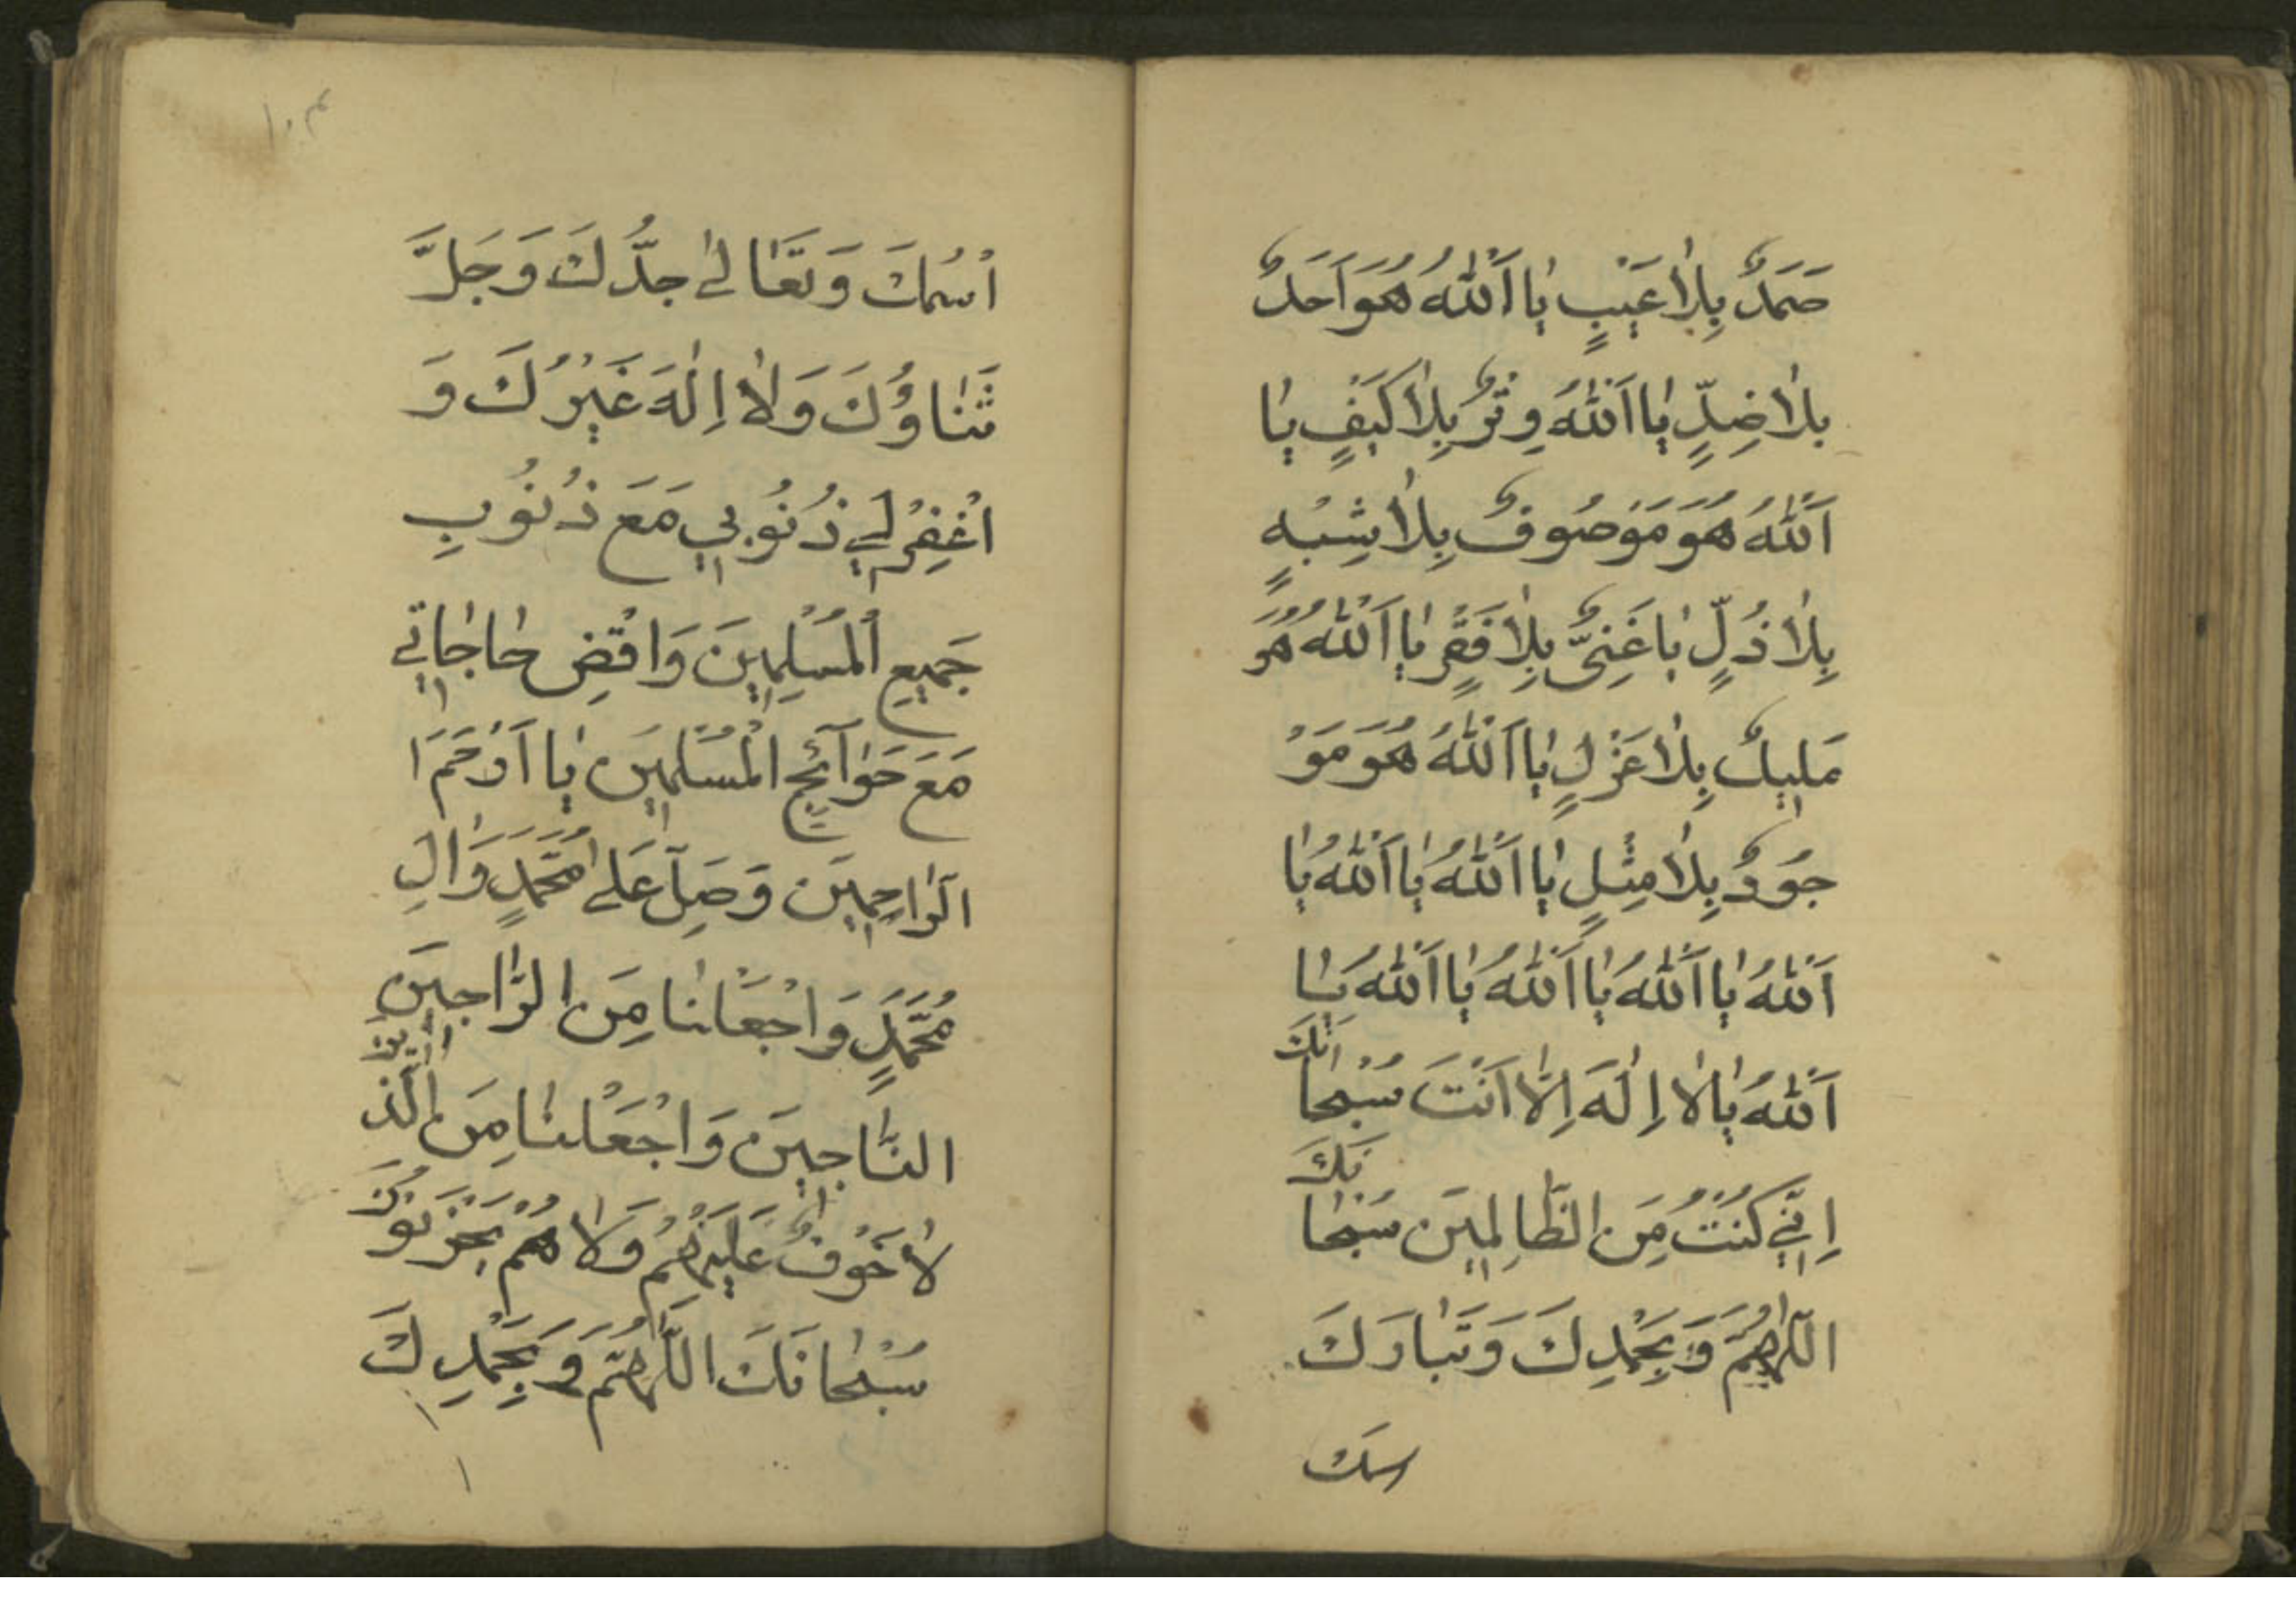 صَمَدٌ بِلاٰعَيْبٍ يٰا اَللّٰهُ هُوَ اَحَدٌ
بلاٰضِدٍّ يٰا اَللّٰهُ وِتْرٌ بِلاٰكَيْفٍ يٰا
اَللّٰهُ هُوَ مَوْصُوفٌ بِلاٰشِبْهٍ
بِلاٰذُلٍّ يٰا غَنِيٌّ بِلاٰفَقْرٍ يٰا اَللّٰهُ هُوَ
مَلِيكٌ بِلاٰعَزْلٍ يٰا اَللّٰهُ هُوَ مَوْ
جُودٌ بِلاٰمِثْلٍ يٰا اَللّٰهُ يٰا اَللّٰهُ يٰا
اَللّٰهُ يٰا اَللّٰهُ يٰا اَللّٰهُ يٰا اَللّٰهُ يٰا
اَللّٰهُ يٰا لاٰ اِلٰهَ اِلاّٰ اَنْتَ سُبْحٰانَكَ
اِنّٖي كُنْتُ مِنَ الظّٰالِمٖينَ سُبْحٰانَكَ
اللّٰهُمَّ وَبِحَمْدِكَ وَتَبٰارَكَ
اسمك
١٠٣
اسْمُكَ وَتَعَالٰى جَدُّكَ وَجَلَّ
ثَنٰاؤُكَ وَلاٰ اِلٰهَ غَيْرُكَ وَ
اغْفِرْلٖي ذُنُوبٖي مَعَ ذُنُوبِ
جَمٖيعِ الْمُسْلِمٖينَ وَاقْضِ حٰاجٰاتٖي
مَعَ حَوٰآئِجِ الْمُسْلِمٖينَ يٰا اَرْحَمَ ا
الرّٰاحِمٖينَ وَصَلِّ عَلٰى مُحَمَّدٍ وَاٰلِ
مُحَمَّدٍ وَاجْعَلْنٰا مِنَ الرّٰاجٖينَ
النّٰاجٖينَ وَاجْعَلْنٰا مِنَ الَّذٖينَ
لاٰخَوْفٌ عَلَيْهِمْ وَلاٰ هُمْ يَحْزَنُونَ
سُبْحٰانَكَ اللّٰهُمَّ وَبِحَمْدِكَ